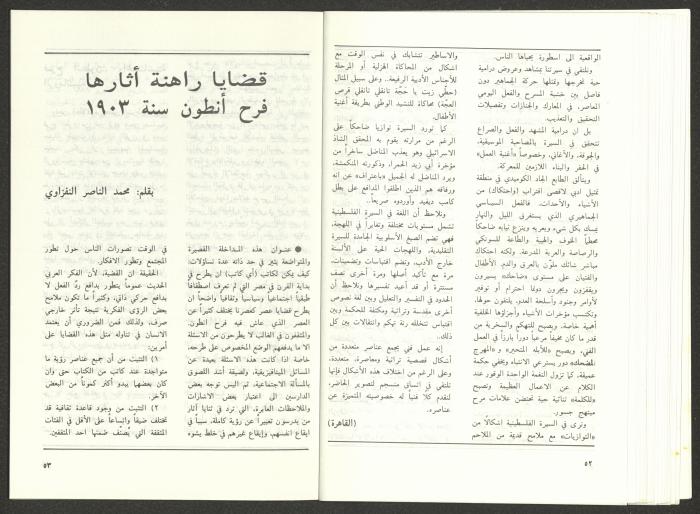 الواقعية الى اسطورة يحياها الناس.
ونلتقي في سيرتنا بمشاهد وعروض درامية
حية تخرجها وتمثلها حركة الجماهير دون
فاصل بين خشبة المسرح والفعل اليومي
المعاصر، في المعارك والجنازات وتفصيلات
التحقيق والتعذيب.
بل ان درامية المشهد والفعل والصراع
تتحقق في السيرة بالمصاحبة الموسيقية،
والجوقة، والأغاني، وخصوصاً «أغنية العمل»
في الحفر والبناء اللازمين للمعركة.
ويتألق الطابع الجاد الكوميدي في منطقة
تمثيل ادبي لاقصى اقتراب (واحتكاك) من
الأشياء والأحداث. فالفعل السياسي
الجماهيري الذي يستغرق الليل والنهار
يمسك بكل شيء ويعريه وينزع نيابه ضاحكاً
محطماً الخوف والهيبة والطاعة للسونكي
والرصاصة والعربة المدرعة. ولكنه احتكاك
مباشر شائك ملوّن بالعرق والدم. الأطفال
والفتيان على مستوى «ضاحك» يسيرون
ويقفزون ويجرون دونما احترام أو توقير
لأوامر وجنود وأسلحة العدو، يلتفون حولها،
وتكتسب مؤخرات الأشياء وأجزاؤها الخلفية
أهمية خاصة. ويصبح للتهكم والسخرية من
قدر ما كان مخيفاً مرعباً دوراً بارزاً في العمل
الفني. ويصبح «للأبله المتحير» و«المهرج
المضحك» دور يسترعي الانتباه وتخفي حكمة
عميقة. كما تزول النغمة الواحدة الوقور عند
الكلام عن الاعمال العظيمة وتصبح
«للكلمة» ثنائية حية تحتضن علامات مرح
مبتهج جسور.
ونرى في السيرة الفلسطينية اشكالًا من
«التوازيات» مع ملامح قديمة من الملاحم
والاساطير تتشابك في نفس الوقت مع
اشكال من المحاكاة الهزلية أو المرحلة
للأجناس الأدبية الرفيعة.. وعلى سبيل المثال
(حطّي زيت يا حجّة تانقلي تانقلي قرص
العجّة) محاكاة للنشيد الوطني بطريقة أغنية
الأطفال.
كما تورد السيرة توازيا ضاحكاً على
الرغم من مرارته يقوم به المحقق الشاذ
الاسرائيلي وهو يعذب المناضل ساخراً من
مؤخرة أبي زيد الحمرا، وذكورته المنكمشة،
ويرد المناضل له الجميل «باعتراف» عن انه
ورفاقه هم الذين اطلقوا المدافع على بطل
كامب ديفيد وأوردوه صريعاً..
ونلاحظ أن اللغة في السيرة الفلسطينية
تشمل مستويات مختلفة وتغايراً في اللهجة،
فهي تضم الصيغ الأسلوبية الجامدة للسيرة
التقليدية، واللهجات الحية على الألسنة
خارج الأدب، وتضم اقتباسات وتضمينات،
مرة مع تأكيد أصلها ومرة أخرى نصف
مستترة أو قد أعيد تفسيرها ونلاحظ أن
الحدود في التفسير والتعليل وبين لغة نصوص
أخرى مقدسة وتراثية ومكثفة للحكمة وبين
اقتباس تتخلله رنة تهكم وانتقالات بين كل
ذلك.
إنه عمل فني يجمع عناصر متعددة من
أشكال قصصية تراثية ومعاصرة، متعددة،
وعلى الرغم من اختلاف هذه الأشكال فإنها
تلتقي في اتساق منسجم لتصوير الحاضر،
لتقدم كلا فنيا له خصوصيته المتميزة عن
عناصره.
(القاهرة)
٥٢
قضايا راهنة أثارها
فرح أنطون سنة ١٩٠٣
بقلم: محمد الناصر النفزاوي
● عنوان هذه المداخلة القصيرة
والمتواضعة يثير في حد ذاته عدة تساؤلات:
كيف يمكن لكاتب (أي كاتب) ان يطرح في
بداية القرن في مصر التي لم تعرف اصطفافاً
طبقياً اجتماعياً وسياسياً وثقافياً واضحاً ان
يطرح قضايا عصر كعصرنا يختلف كثيراً عن
العصر الذي عاش فيه فرح أنطون.
والمثقفون في الغالب لا يطرحون من الاسئلة
الا ما يدفعهم الوضع المخصوص على طرحه.
خاصة اذا كانت هذه الاسئلة بعيدة عن
المسائل الميتافيزيقية، ولصيقة أشد اللصوق
بالمسألة الاجتماعية، ثم اليس توجه بعض
الدارسين الى اعتبار بعض الاشارات
والملاحظات العابرة، التي ترد في ثنايا آثار
من يدرسون تعبيراً عن رؤية كاملة، سبباً في
ايقاع انفسهم، وإيقاع غيرهم في خلط يشوه
في الوقت، تصورات الناس حول تطور
المجتمع وتطور الافكار.
الحقيقة ان القضية، لأن الفكر العربي
الحديث عموماً يتطور بدافع ردّ الفعل لا
بدافع حركي ذاتي، وكثيراً ما تكون ملامح
بعض الرؤى الفكرية نتيجة تأثر خارجي
صرف، ولذلك، فمن الضروري أن يعتمد
الانسان في تناوله مثل هذه القضايا على
أمرين:
١) التثبت من أن جميع عناصر رؤية ما
متواجدة عند كاتب من الكتاب حتى وان
كان بعضها يبدو أكثر كموناً من البعض
الآخر.
٢) التثبت من وجود قاعدة ثقافية قد
تختلف ضيقاً واتساعاً على الأقل في الفئات
المثقفة التي يُصنّف ضمنها احد المثقفين.
٥٣